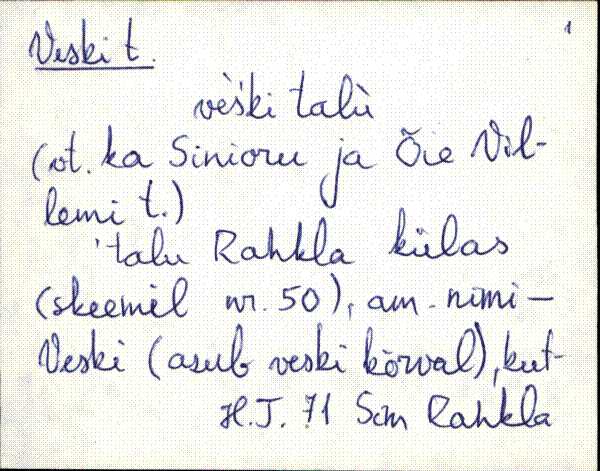 1
Veski t.
vèški talù
(vt. ka Sinioru ja Õie Vil-
lemi t.)
'talu Rahkla külas
(skeemil nr. 50), am. nimi –
Veski (asub veski kõrval), kut-
H.J. 71 Sim Rahkla